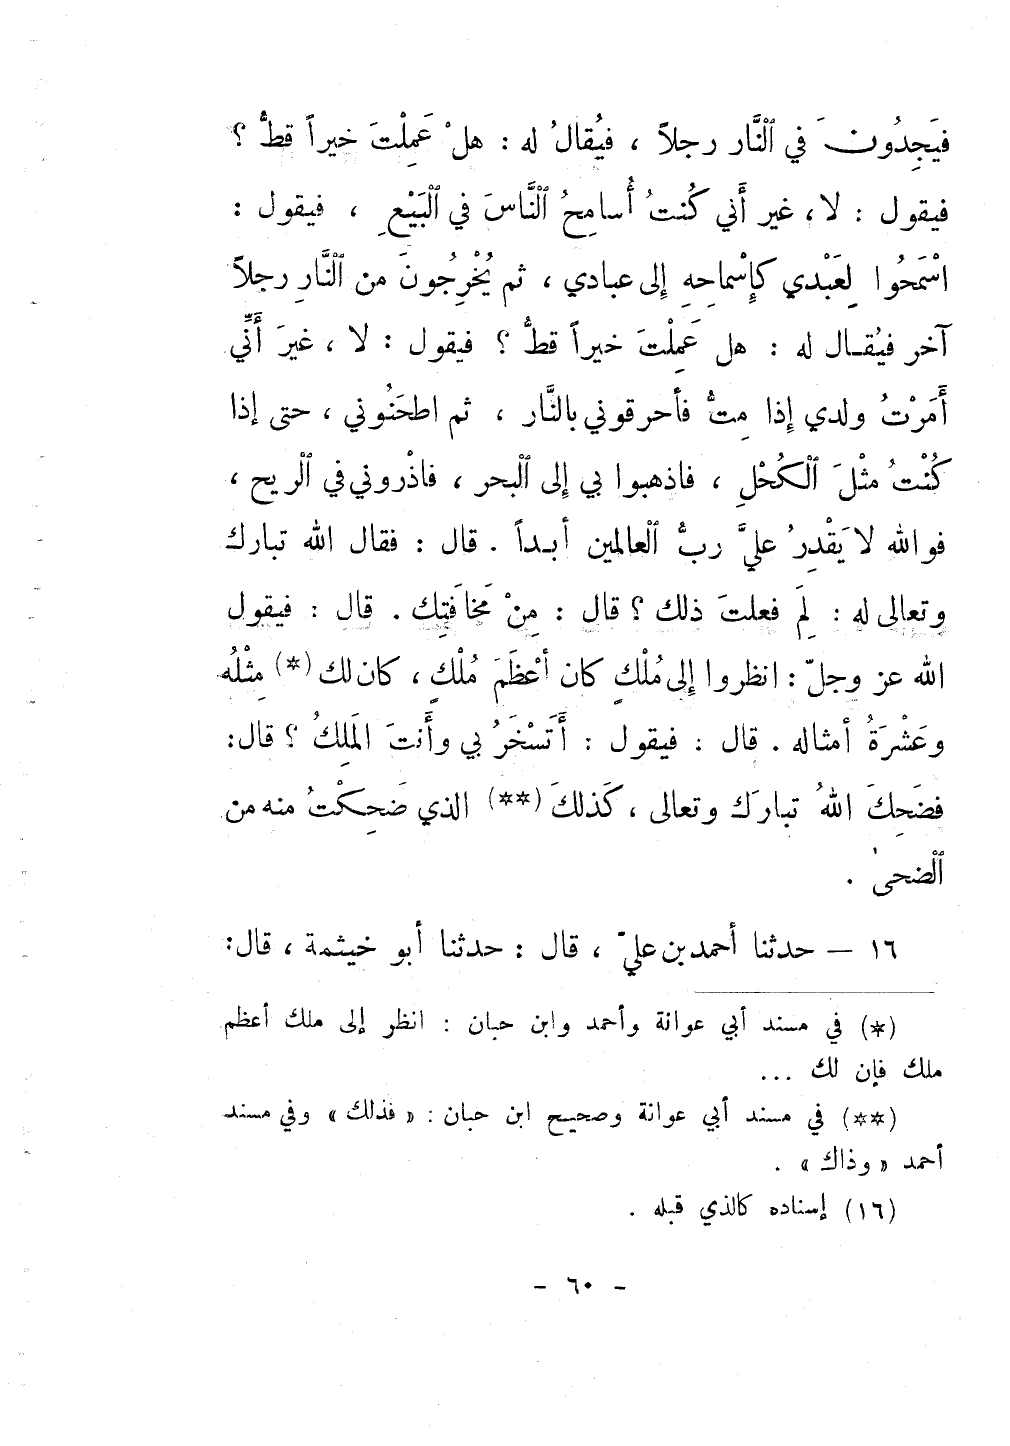 فيَجِدُونَ في ٱلنَّار رجلاً ، فيُقالُ له : هلْ عَمِلْتَ خيراً قطُّ ؟
فيقول : لا، غير أَني كُنتُ أُسامِحُ ٱلنَّاسَ في ٱلبَيْعِ ، فيقول :
اسْمَحُوا لِعَبْدي كإِسْماحِهِ إلى عبادي ، ثم يُخْرِجُونَ من ٱلنَّارِ رجلاً
آخر فيُقال له : هل عَمِلْتَ خيراً قطُّ ؟ فيقول : لا ، غيرَ أَنِّي
أَمَرْتُ ولدي إِذا مِتُّ فأحرقوني بالنَّار ، ثم اطحَنُوني ، حتى إذا
كُنْتُ مثْلَ ٱلكُحْلِ ، فاذهبوا بي إلى ٱلبحر ، فاذْروني في ٱلريح ،
فوالله لا يَقْدِرُ عليَّ ربُّ ٱلعالمين أبداً . قال : فقال الله تبارك
وتعالى له : لِمَ فعلتَ ذلك ؟ قال : مِنْ مَخافَتِك . قال : فيقول
الله عز وجلّ : انظروا إلى مُلْكِ كان أعْظَمَ مُلْكٍ ، كان لك (*) مِثْلُه
وعَشْرَةُ أمثاله . قال : فيقول : أَتَسْخَرُ بي وأَنتَ المَلِكُ ؟ قال:
فضَحِكَ اللهُ تباركَ وتعالى ، كَذلكَ (**) الذي ضَحِكْتُ منه من
ٱلضحىٰ .
١٦ — حدثنا أحمد بن عليّ ، قال : حدثنا أبو خيثمة ، قال:
(*) في مسند أبي عوانة وأحمد وابن حبان : انظر إلى ملك أعظم
ملك فإن لك ...
(**) في مسند أبي عوانة وصحيح ابن حبان : « فذلك » وفي مسند
أحمد « وذاك » .
(١٦) إسناده كالذي قبله .
- ٦٠ -